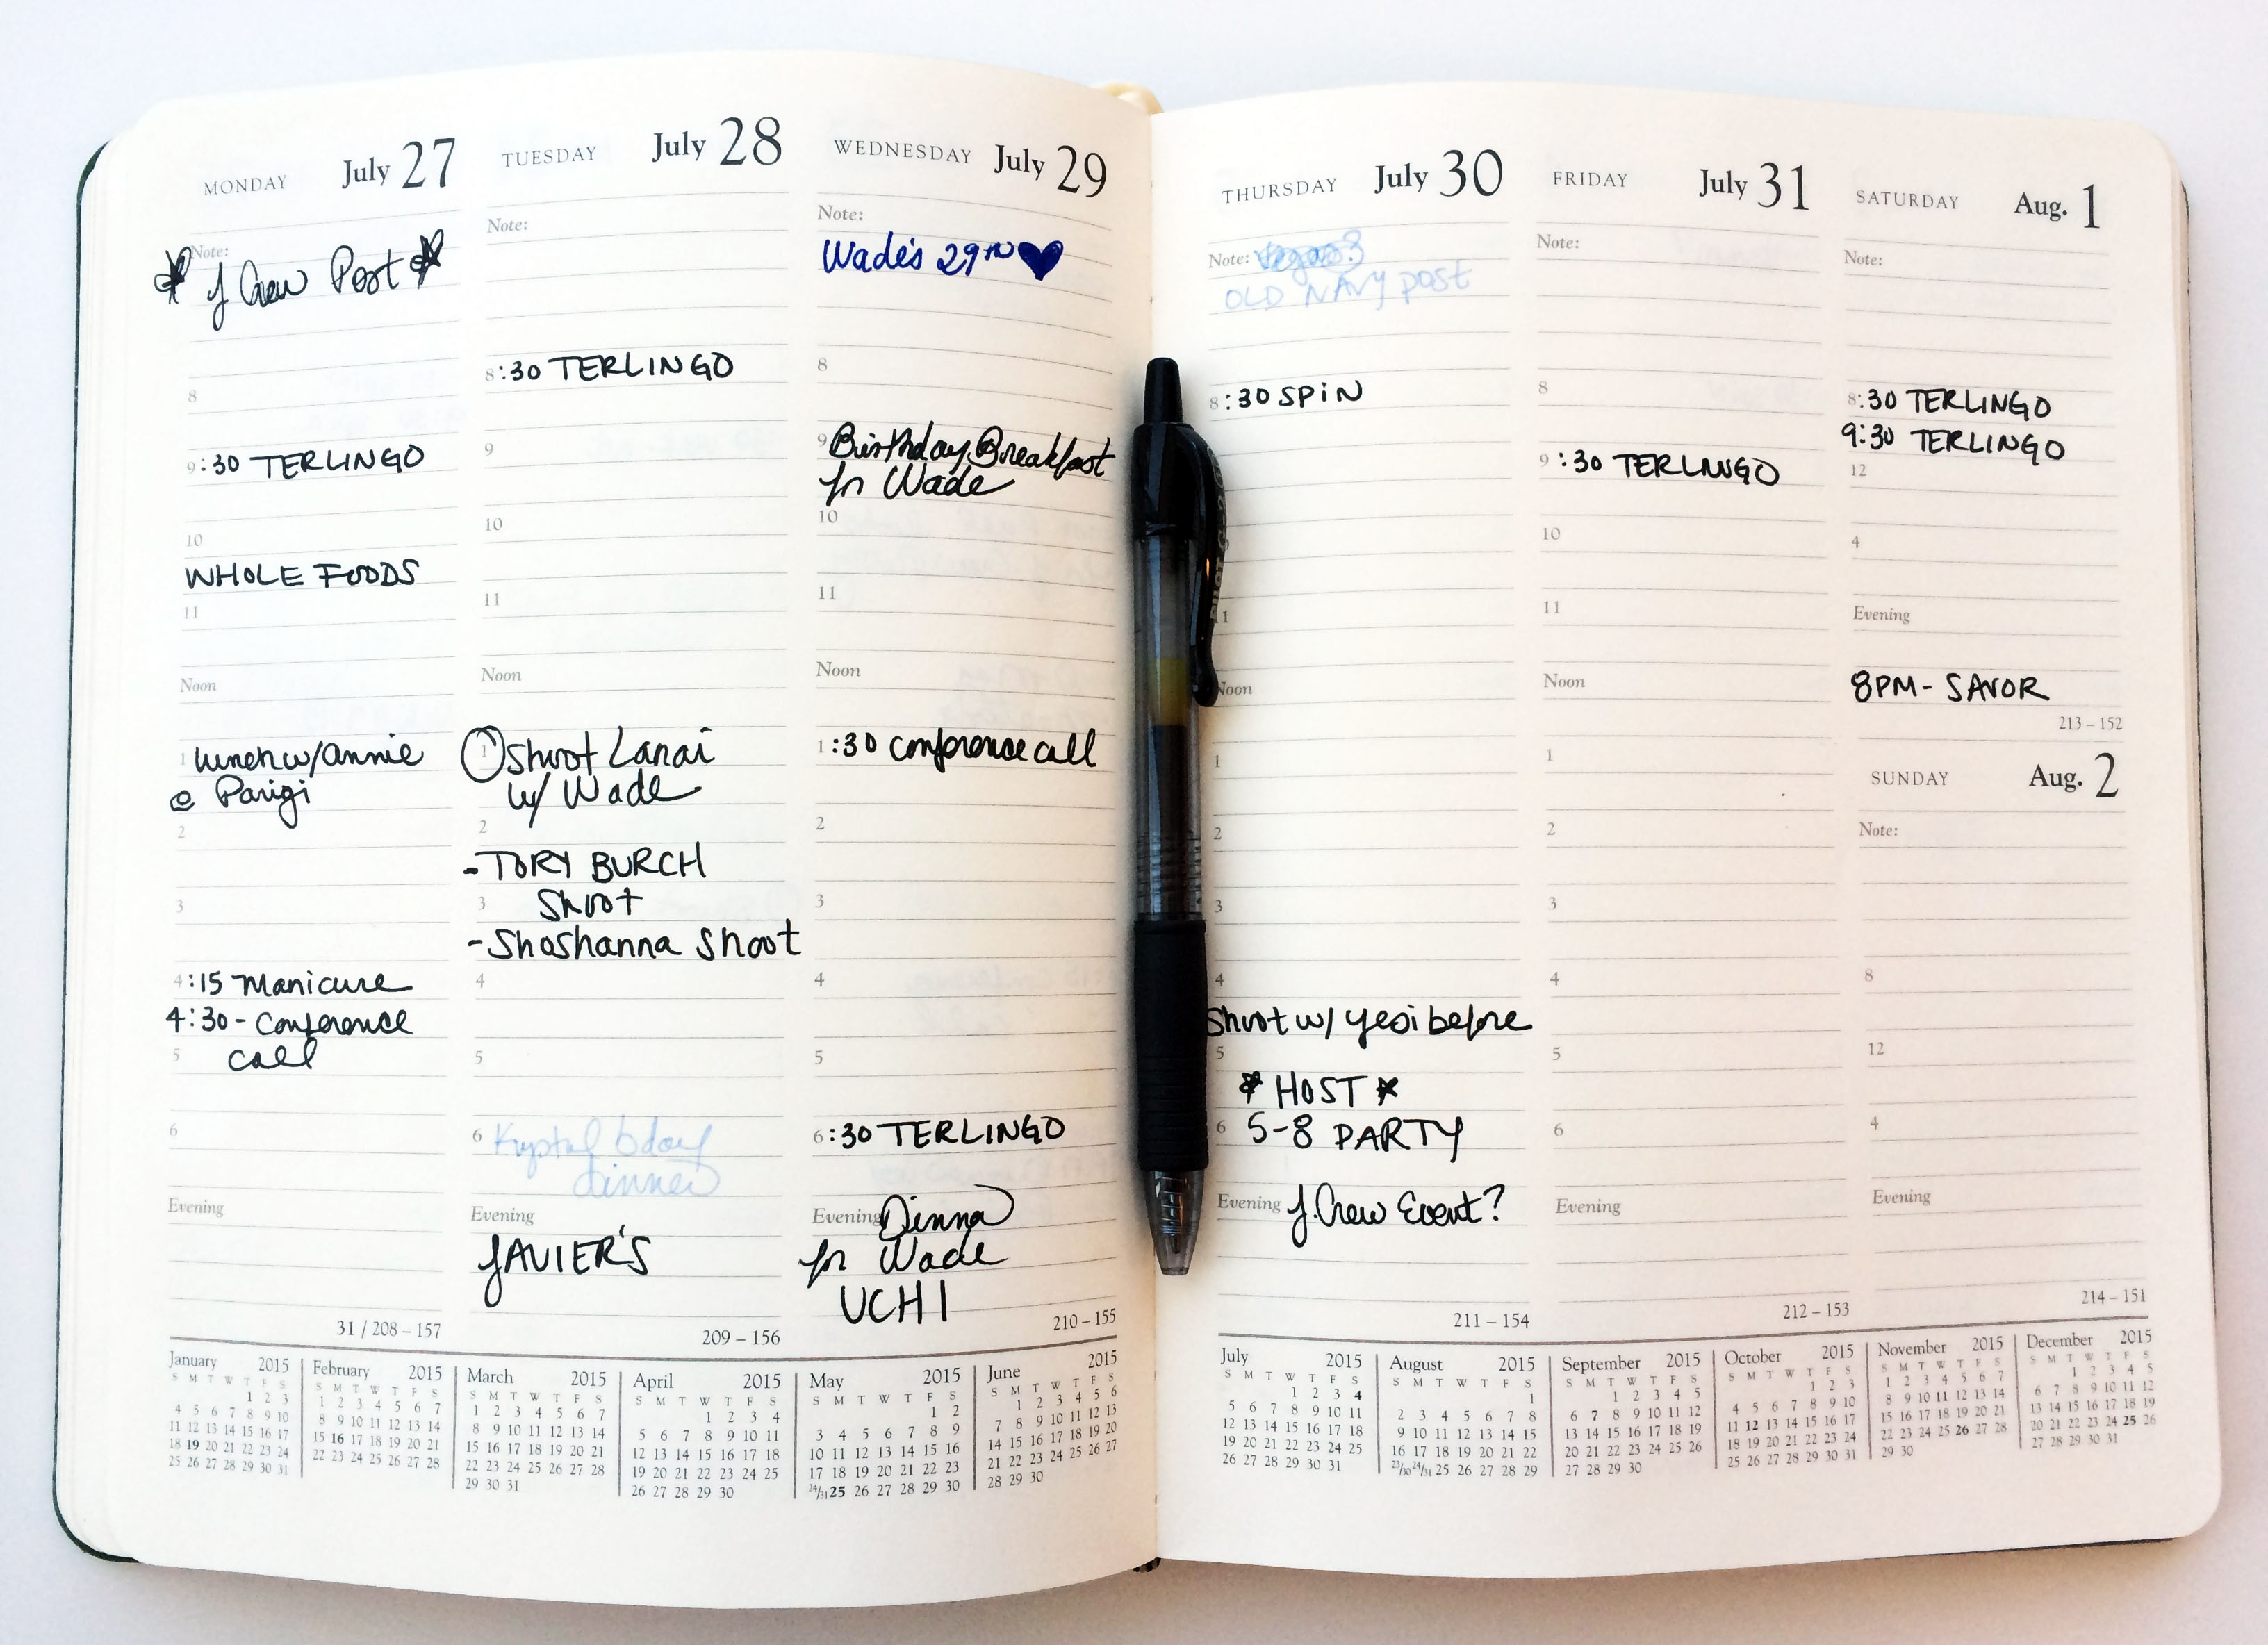 MONDAY July 27
Note:
J Crew Post
8
9:30 TERLINGO
10
WHOLE FOODS
11
Noon
1 lunch w/ annie
@ Parigi
2
3
4:15 Manicure
4:30 - Conference
5 call
6
Evening
31 / 208 – 157
TUESDAY July 28
Note:
8:30 TERLINGO
9
10
11
Noon
1 Shoot Lanai
w/ Wade
2
- TORY BURCH
3 Shoot
- Shoshanna Shoot
4
5
6 Krystal bday
dinner
Evening
JAVIER'S
209 – 156
WEDNESDAY July 29
Note:
Wade's 29TH
8
9 Birthday Breakfast
for Wade
10
11
Noon
1:30 conference call
2
3
4
5
6:30 TERLINGO
Evening Dinner
for Wade
UCHI
210 – 155
THURSDAY July 30
Note:
OLD NAVY post
8:30 SPIN
11
Noon
1
2
3
4
Shoot w/ yesi before
5
* HOST *
6 5-8 PARTY
Evening J.Crew Event?
211 – 154
FRIDAY July 31
Note:
8
9:30 TERLINGO
10
11
Noon
1
2
3
4
5
6
Evening
212 – 153
SATURDAY Aug. 1
Note:
8:30 TERLINGO
9:30 TERLINGO
12
4
Evening
8PM - SAVOR
213 – 152
SUNDAY Aug. 2
Note:
8
12
4
Evening
214 – 151
PILOT G-2
January 2015
S M T W T F S
1 2 3
4 5 6 7 8 9 10
11 12 13 14 15 16 17
18 19 20 21 22 23 24
25 26 27 28 29 30 31
February 2015
S M T W T F S
1 2 3 4 5 6 7
8 9 10 11 12 13 14
15 16 17 18 19 20 21
22 23 24 25 26 27 28
March 2015
S M T W T F S
1 2 3 4 5 6 7
8 9 10 11 12 13 14
15 16 17 18 19 20 21
22 23 24 25 26 27 28
29 30 31
April 2015
S M T W T F S
1 2 3 4
5 6 7 8 9 10 11
12 13 14 15 16 17 18
19 20 21 22 23 24 25
26 27 28 29 30
May 2015
S M T W T F S
1 2
3 4 5 6 7 8 9
10 11 12 13 14 15 16
17 18 19 20 21 22 23
24/31 25 26 27 28 29 30
June 2015
S M T W T F S
1 2 3 4 5 6
7 8 9 10 11 12 13
14 15 16 17 18 19 20
21 22 23 24 25 26 27
28 29 30
July 2015
S M T W T F S
1 2 3 4
5 6 7 8 9 10 11
12 13 14 15 16 17 18
19 20 21 22 23 24 25
26 27 28 29 30 31
August 2015
S M T W T F S
1
2 3 4 5 6 7 8
9 10 11 12 13 14 15
16 17 18 19 20 21 22
23/30 24/31 25 26 27 28 29
September 2015
S M T W T F S
1 2 3 4 5
6 7 8 9 10 11 12
13 14 15 16 17 18 19
20 21 22 23 24 25 26
27 28 29 30
October 2015
S M T W T F S
1 2 3
4 5 6 7 8 9 10
11 12 13 14 15 16 17
18 19 20 21 22 23 24
25 26 27 28 29 30 31
November 2015
S M T W T F S
1 2 3 4 5 6 7
8 9 10 11 12 13 14
15 16 17 18 19 20 21
22 23 24 25 26 27 28
29 30
December 2015
S M T W T F S
1 2 3 4 5
6 7 8 9 10 11 12
13 14 15 16 17 18 19
20 21 22 23 24 25 26
27 28 29 30 31